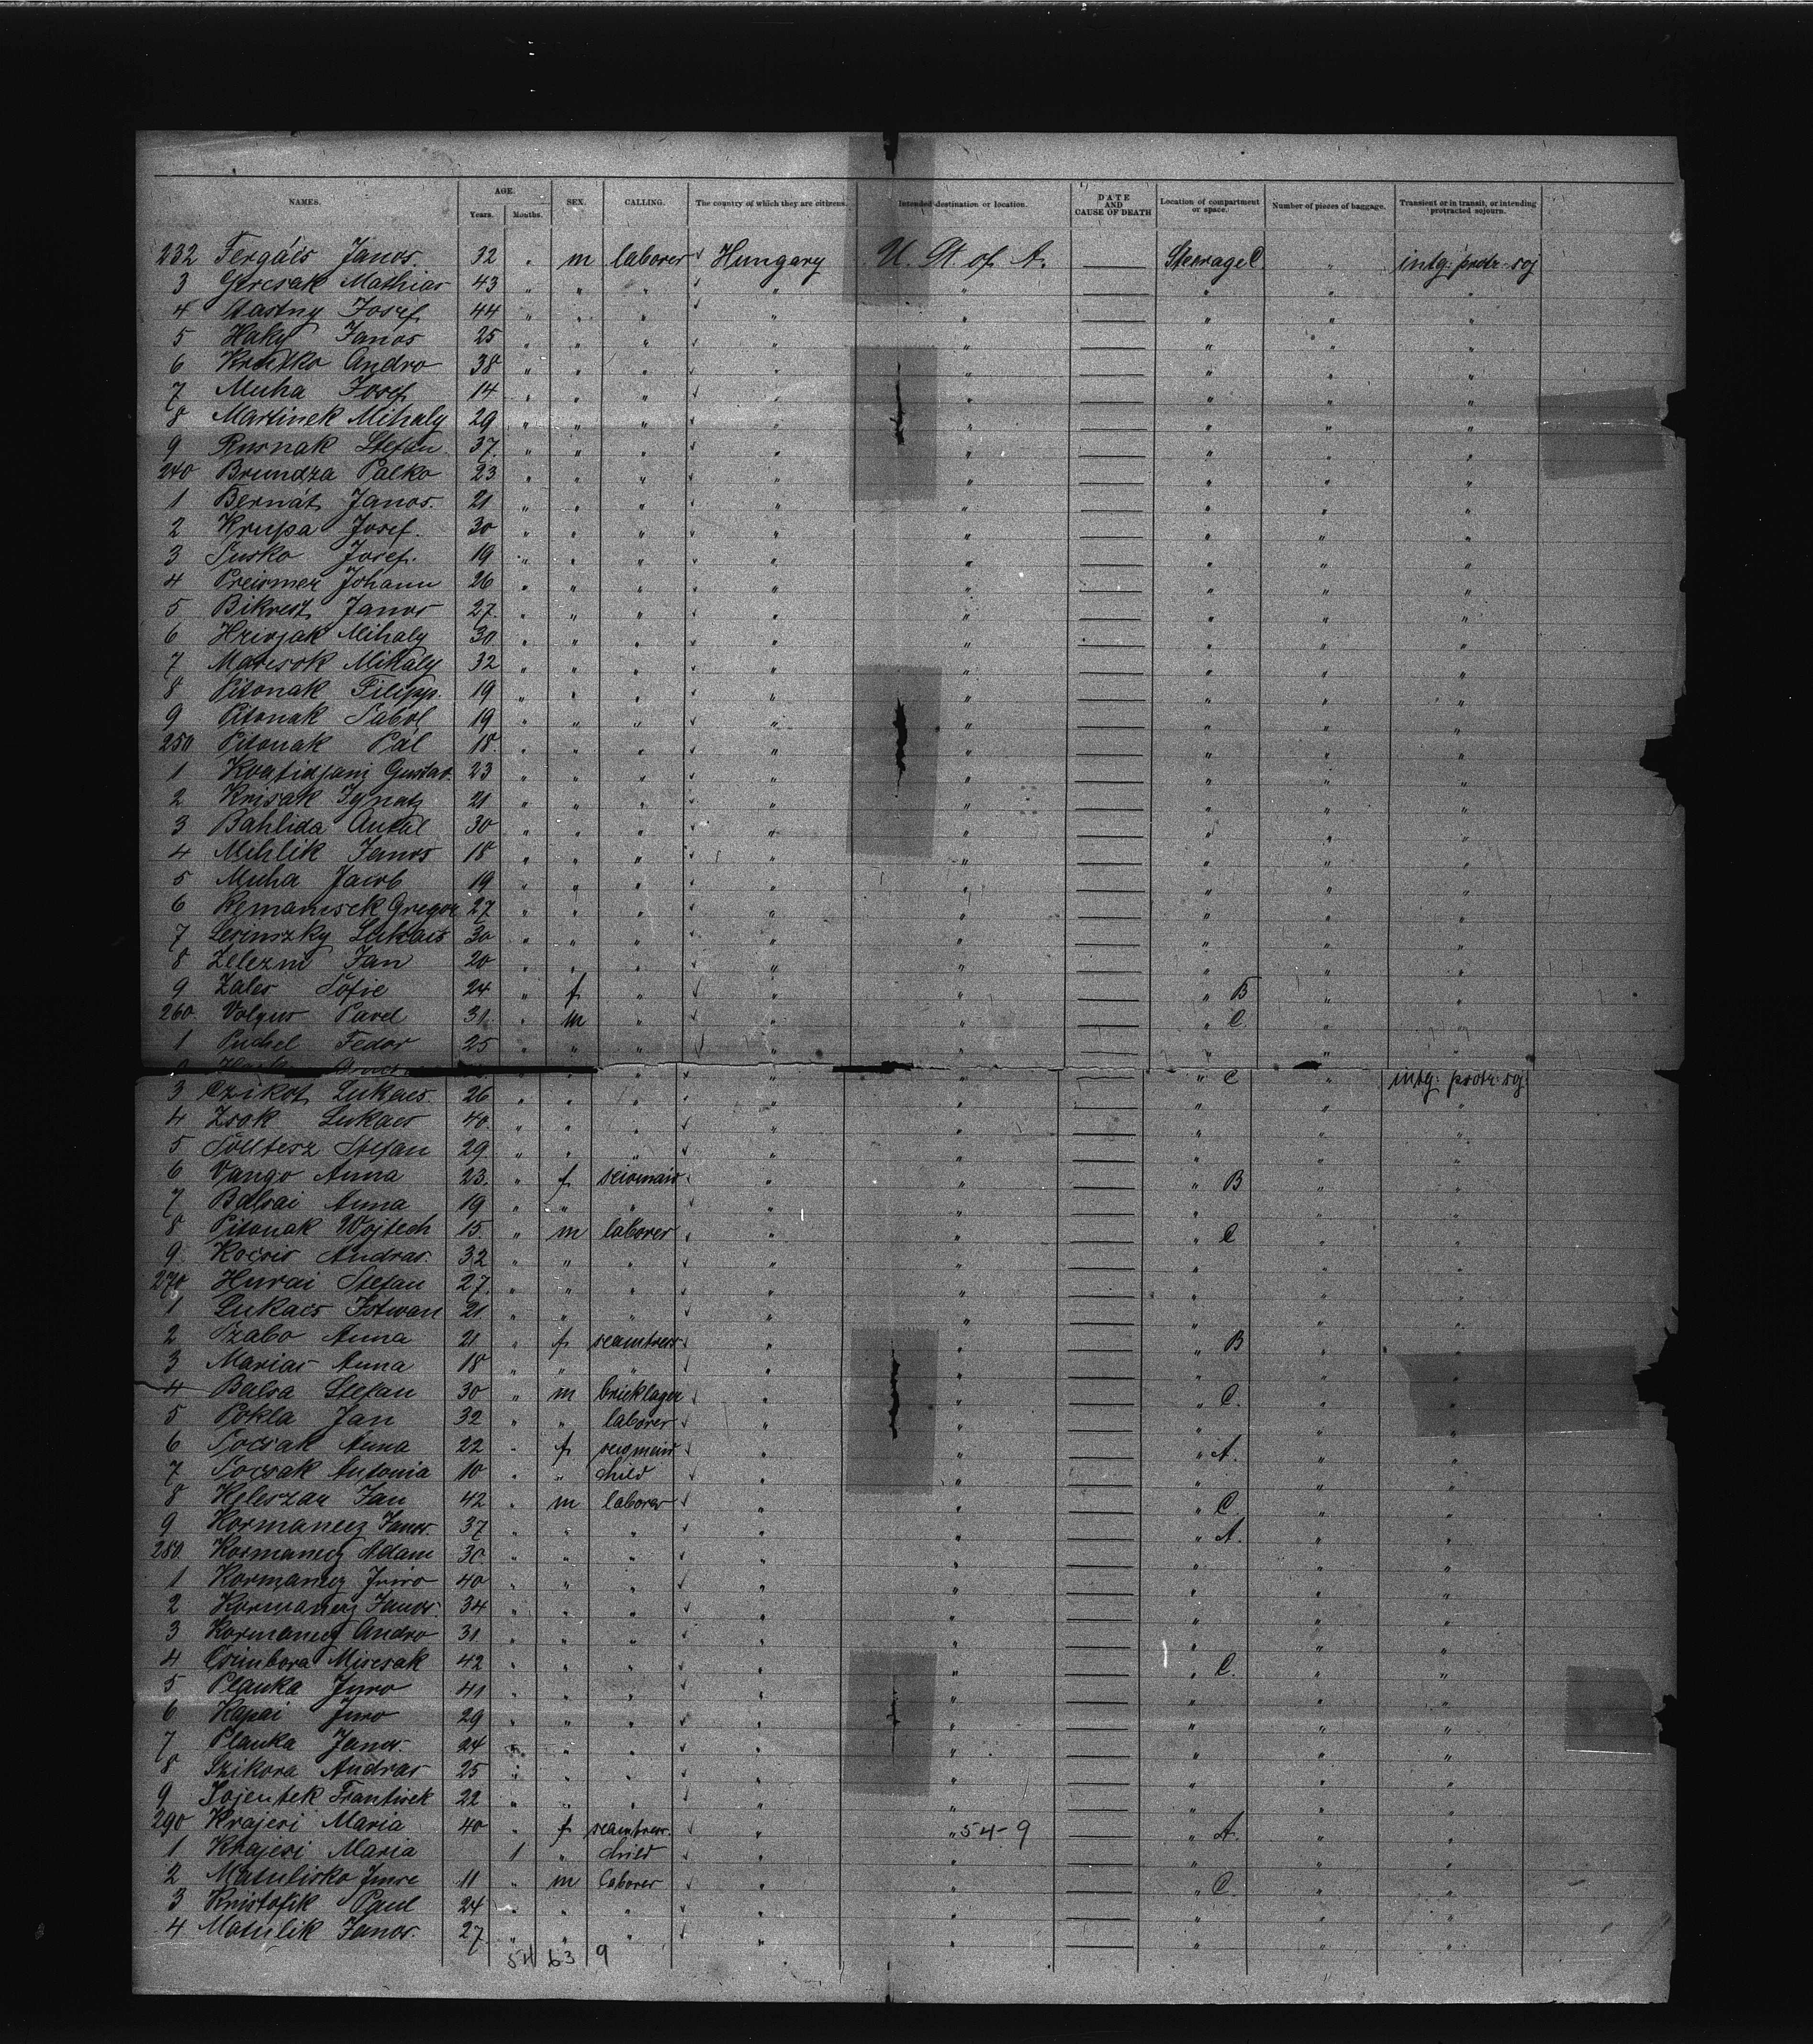 NAMES. AGE. Years. Months. SEX. CALLING. The country of which they are citizens. Intended destination or location. DATE AND CAUSE OF DEATH Location of compartment or space. Number of pieces of baggage. Transient or in transit, or intending protracted sojourn.
232 Janos 32 " m laborer ✓ Hungary U. St. of A. — Steerage C. " intg. protr. soj
3 Gercsak Mathias 43 " " " ✓ " " — " " "
4 Stastny Josef 44 " " " ✓ " " — " " "
5 Haky Janos 25 " " " ✓ " " — " " "
6 Andro 38 " " " ✓ " " — " " "
7 Muha Josef 14 " " " ✓ " " — " " "
8 Martinek Mihaly 29 " " " ✓ " " — " " "
9 Rusnak Stefan 37 " " " ✓ " " — " " "
240 Brundza Palko 23 " " " ✓ " " — " " "
1 Bernát Janos. 21 " " " ✓ " " — " " "
2 Krupa Josef. 30 " " " ✓ " " — " " "
3 Susko Josef. 19 " " " ✓ " " — " " "
4 Johann 26 " " " ✓ " " — " " "
5 Janos 27 " " " ✓ " " — " " "
6 Hrivjak Mihaly 30 " " " ✓ " " — " " "
7 Marcsok Mihaly 32 " " " ✓ " " — " " "
8 Pitonak Filipp. 19 " " " ✓ " " — " " "
9 Pitonak 19 " " " ✓ " " — " " "
250 Pitonak Pál 18. " " " ✓ " " — " " "
1 Gustav. 23 " " " ✓ " " — " " "
2 Krisak Ignatz 21 " " " ✓ " " — " " "
3 Bahlida Antal 30 " " " ✓ " " — " " "
4 Mihlik Janos 18 " " " ✓ " " — " " "
5 Muha Jacob 19 " " " ✓ " " — " " "
6 Gregor 27 " " " ✓ " " — " " "
7 Lukacs 30 " " " ✓ " " — " " "
8 Zelezni Jan 20 " " " ✓ " " — " " "
9 Zales Sofie 24 " f " ✓ " " — " B " "
260. Pavel 31. " m " ✓ " " — " C. " "
1 Puchel Fedor 25 " " " ✓ " " — " " "
" " ✓ " " — " C " intg. protr. soj.
3 Czikot Lukacs 26 " " " ✓ " " — " " "
4 Zsak Lukacs 40. " " " ✓ " " — " " "
5 Solltesz Stefan 29. " " " ✓ " " — " " "
6 Vango Anna 23. " f ✓ " " — " B " "
7 Balsai Anna 19 " " " ✓ " " — " " "
8 Pitonak Wojtech 15. " m laborer ✓ " " — " C " "
9. Kocsis Andras. 32 " " " ✓ " " — " " "
270 Hurai Stefan 27. " " " ✓ " " — " " "
1 Lukacs Istwan 21. " " " ✓ " " — " " "
2 Szabo Anna 21 " f seamtress ✓ " " — " B " "
3 Marias Anna 18 " " " ✓ " " — " " "
4 Balsa Stefan 30 " m bricklager ✓ " " — " C. " "
5 Pokla Jan 32 " " laborer ✓ " " — " " "
6 Socsak Anna 22 " f ✓ " " — " A. " "
7 Socsak Antonia 10 " " child ✓ " " — " " "
8 Keleszan Jan 42 " m laborer ✓ " " — " C " "
9 Kormanecz Janos. 37 " " " ✓ " " — " A. " "
280. Kormanecz Adam 30. " " " ✓ " " — " " "
1 Kormanecz 40 " " " ✓ " " — " " "
2 Kormanecz Janos. 34 " " " ✓ " " — " " "
3 Kormanecz Andro 31. " " " ✓ " " — " " "
4 Csimbora Miscsak 42 " " " ✓ " " — " C. " "
5 Planka Juro 41 " " " ✓ " " — " " "
6 Kapai Juro 29 " " " ✓ " " — " " "
7 Planka Janos. 24 " " " ✓ " " — " " "
8 Szikora Andras 25 " " " ✓ " " — " " "
9 Frantisek 22 " " " ✓ " " — " " "
290 Krajcsi Maria 40 " f seamtress. ✓ " " 54-9 — " A. " "
1 Krajcsi Maria 1 " child ✓ " " — " " "
2 Matulisko Imre 11 " m laborer ✓ " " — " C. " "
3 Kristofik Paul 24 " " " ✓ " " — " " "
4 Matulik Janos. 27 " " " ✓ " " — " " "
54 63 9